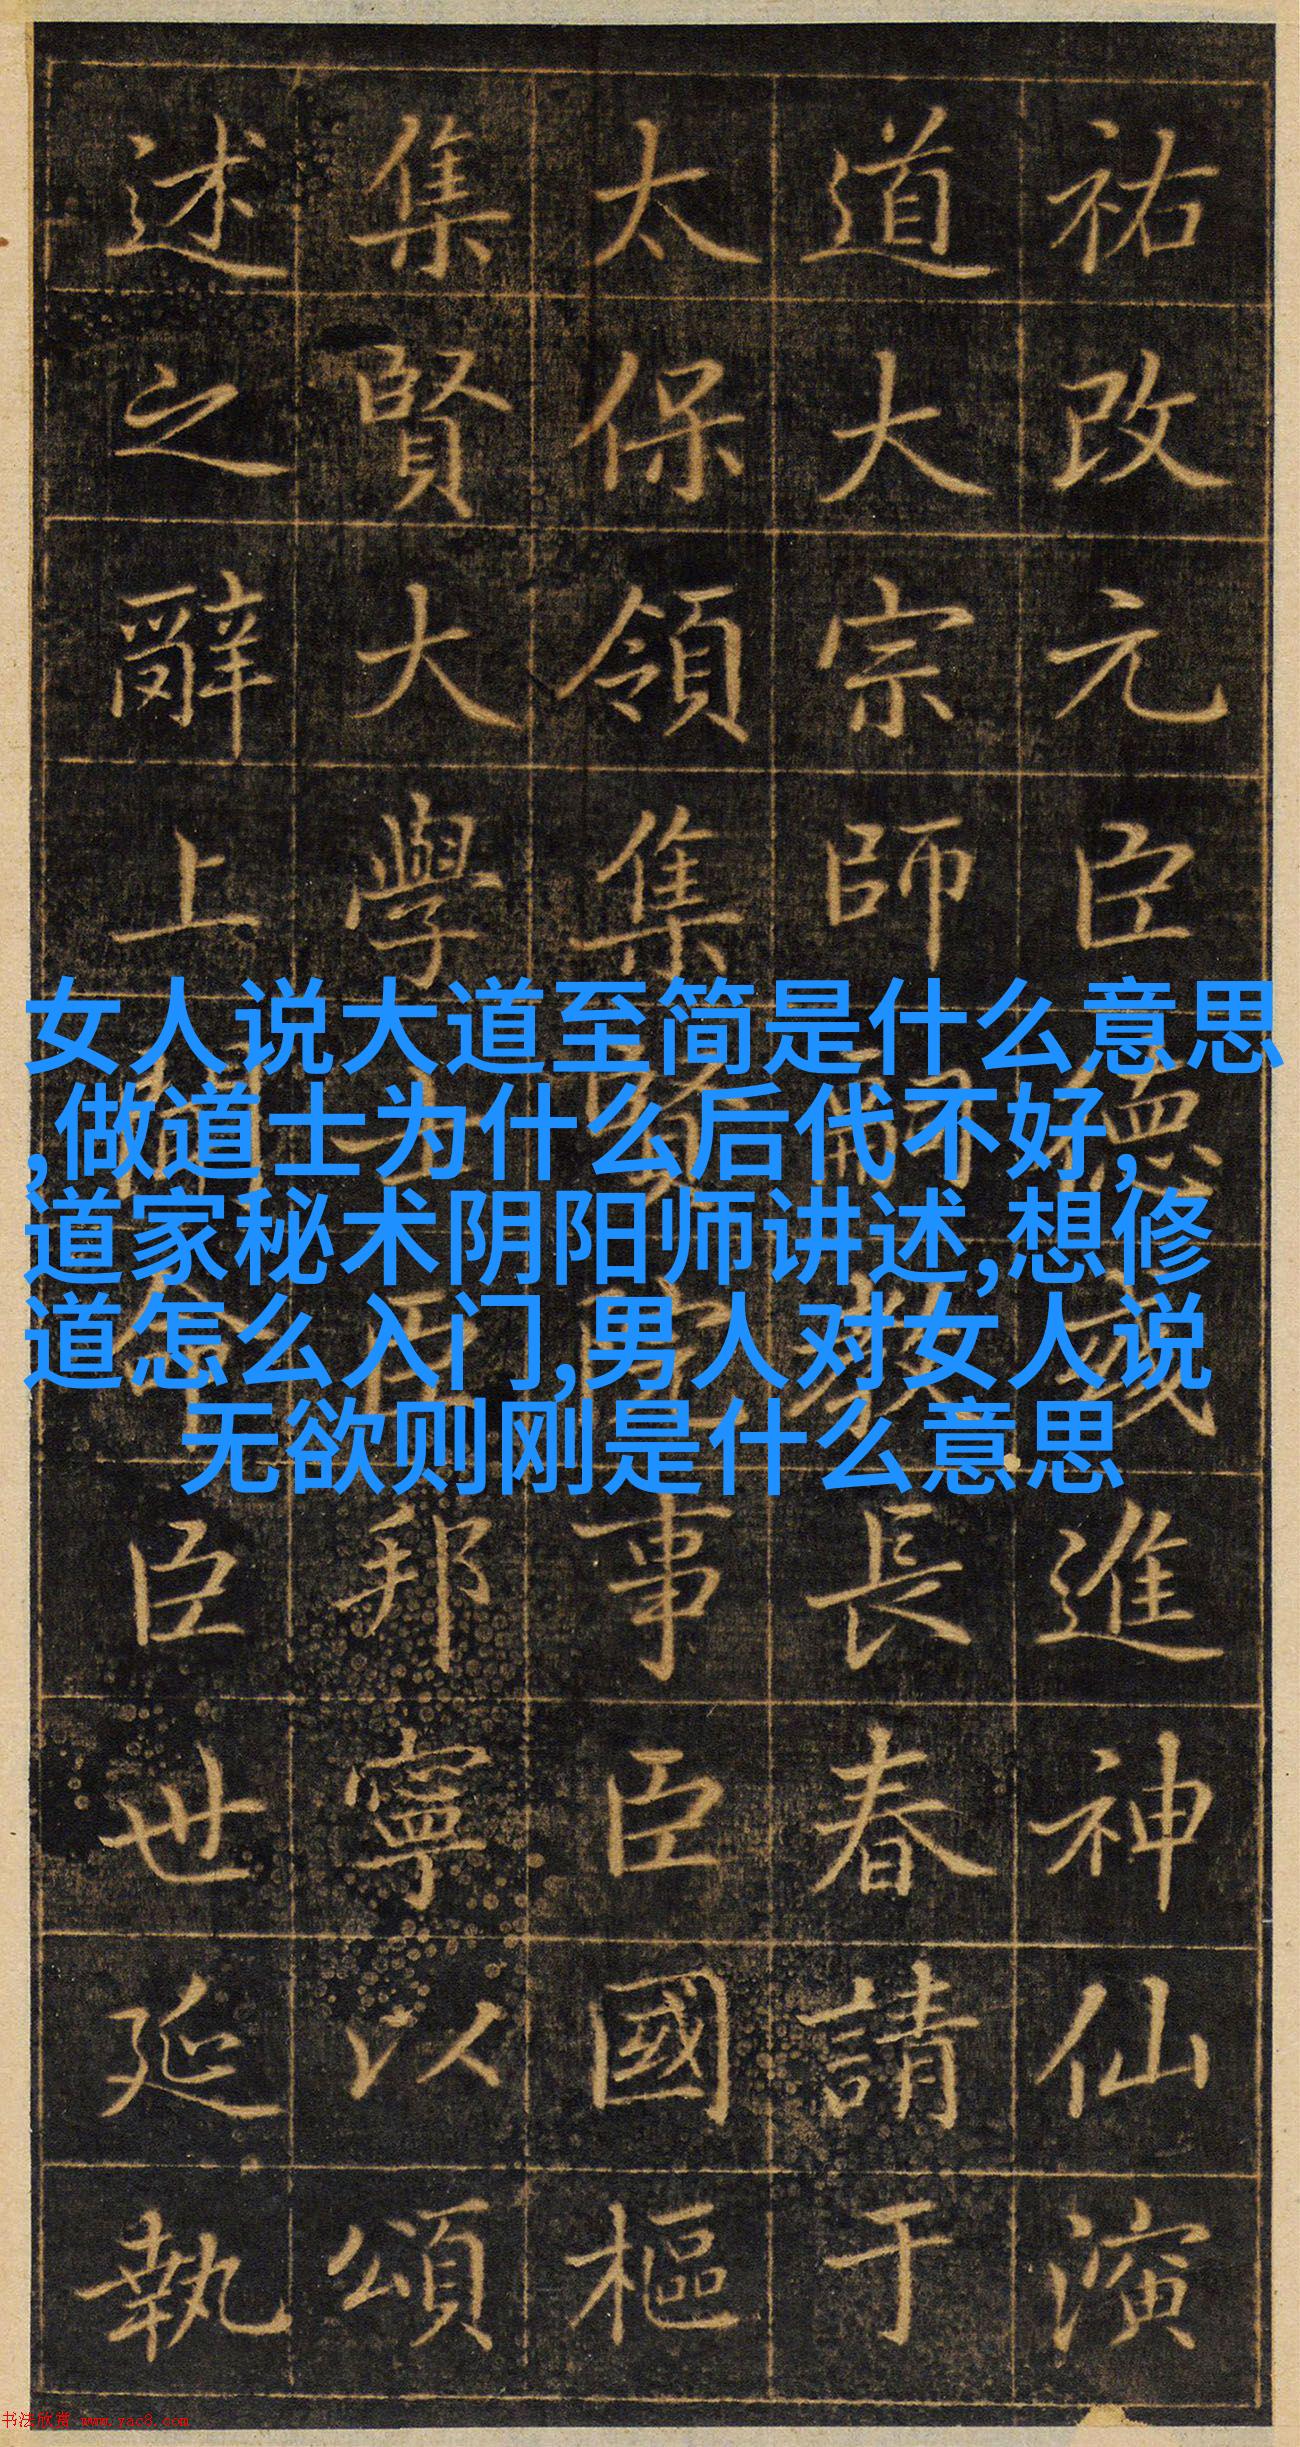 祐改元臣德彧進神仙演
道大宗師嗣教長春請于
太保領集賢事臣國樞
集賢大學士臣邦寧以頌
述之辭上聞臣世延執
女人说大道至简是什么意思
,做道士为什么后代不好,
道家秘术阴阳师讲述,想修
道怎么入门,男人对女人说
无欲则刚是什么意思
书法欣赏 www.yac8.com